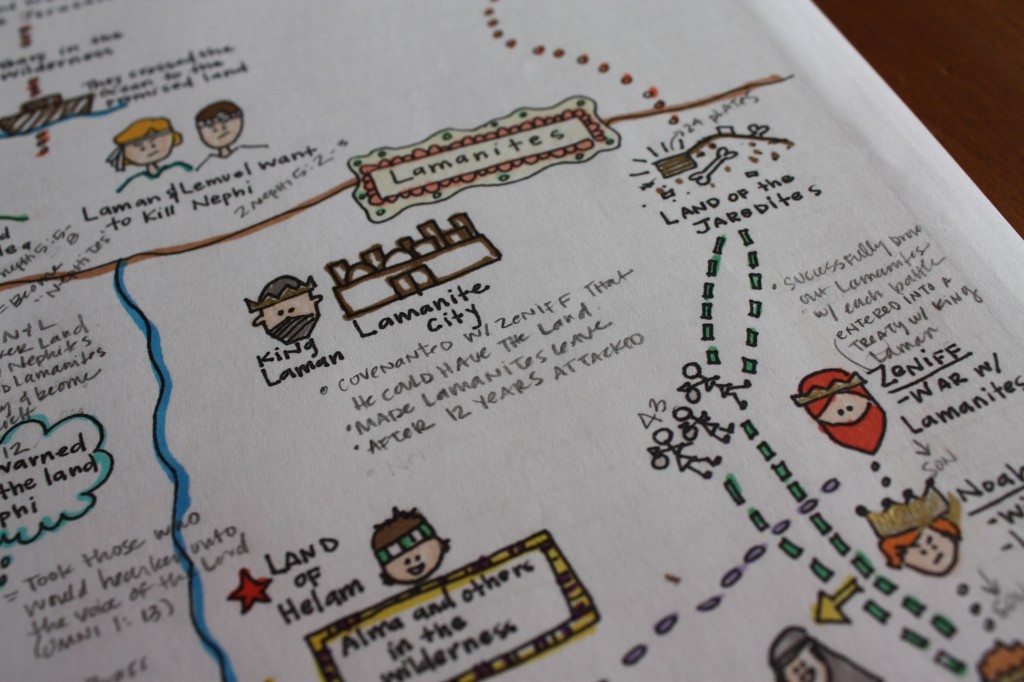 They in the
wilderness
They crossed the
ocean to the
promised land
Laman & Lemuel want
to Kill Nephi
2 Nephi 5:2-3
Lamanites
24 PLATES
LAND OF the
JAREDITES
King
Laman
Lamanite
City
• COVENANTED W/ ZENIFF THAT
HE COULD HAVE THE LAND
• MADE LAMANITES LEAVE
• AFTER 12 YEARS ATTACKED
• SUCCESSFULLY
out Lamanites
w/ each battle
ENTERED INTO A
TREATY w/ KING
Laman
ZENIFF
- WAR w/
Lamanites
SON
Noah
43
Land
Nephites
Lamanites
& become
12
warned
the land
phi
= Took those who
would hearken unto
the voice of the Lord
(OMNI 1:13)
LAND
OF
Helam
Alma and others
in the
wilderness